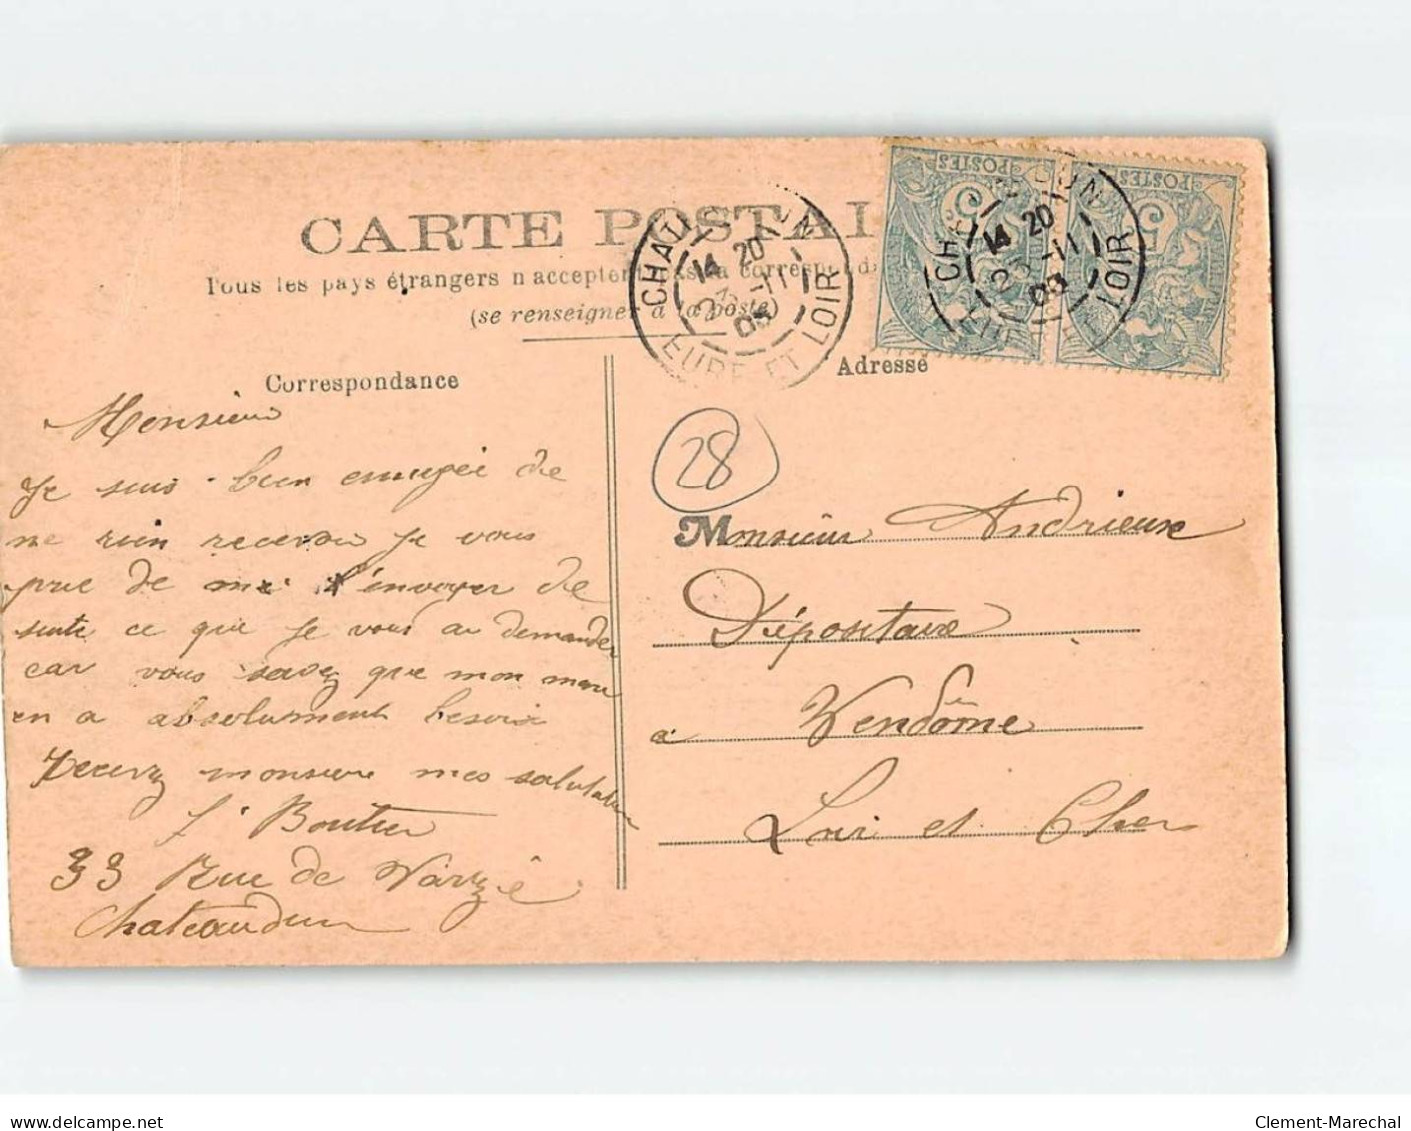 CARTE POSTAL
Tous les pays étrangers n'acceptent pas la correspond
(se renseigner à la poste)
CHATEAUDUN
14 20
23 -11
05
EURE ET LOIR
POSTES
5
POSTES
5
CHATEAUDUN
14 20
23 -11
05
EURE ET LOIR
Correspondance
Monsieur
Je suis bien ennuyée de
ne rien recevoir je vous
prie de me l'envoyer de
suite ce que je vous ai demander
car vous savez que mon mari
en a absolument besoin
Recevez monsieur mes salutation
J Boutier
33 Rue de Varize
Chateaudun
Adresse
28
Monsieur Andrieux
Dépositaire
à Vendôme
Loir et Cher
www.delcampe.net
Clement-Marechal